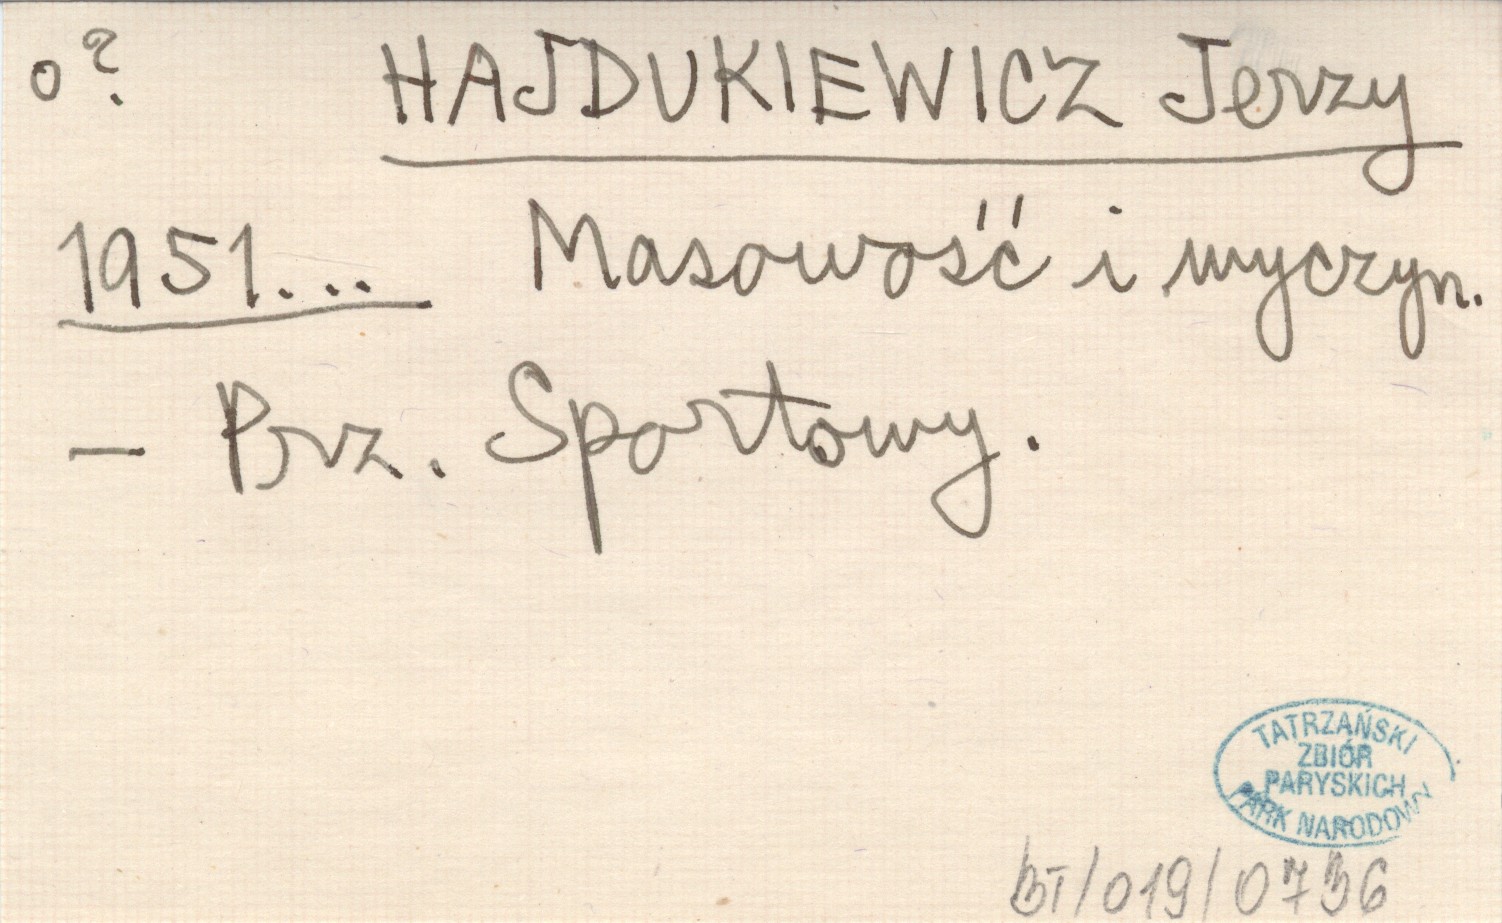 o? HAJDUKIEWICZ Jerzy
1951... Masowość i wyczyn.
— Prz. Sportowy.
TATRZAŃSKI
ZBIÓR
PARYSKICH
PARK NARODOWY
BT/019/0736